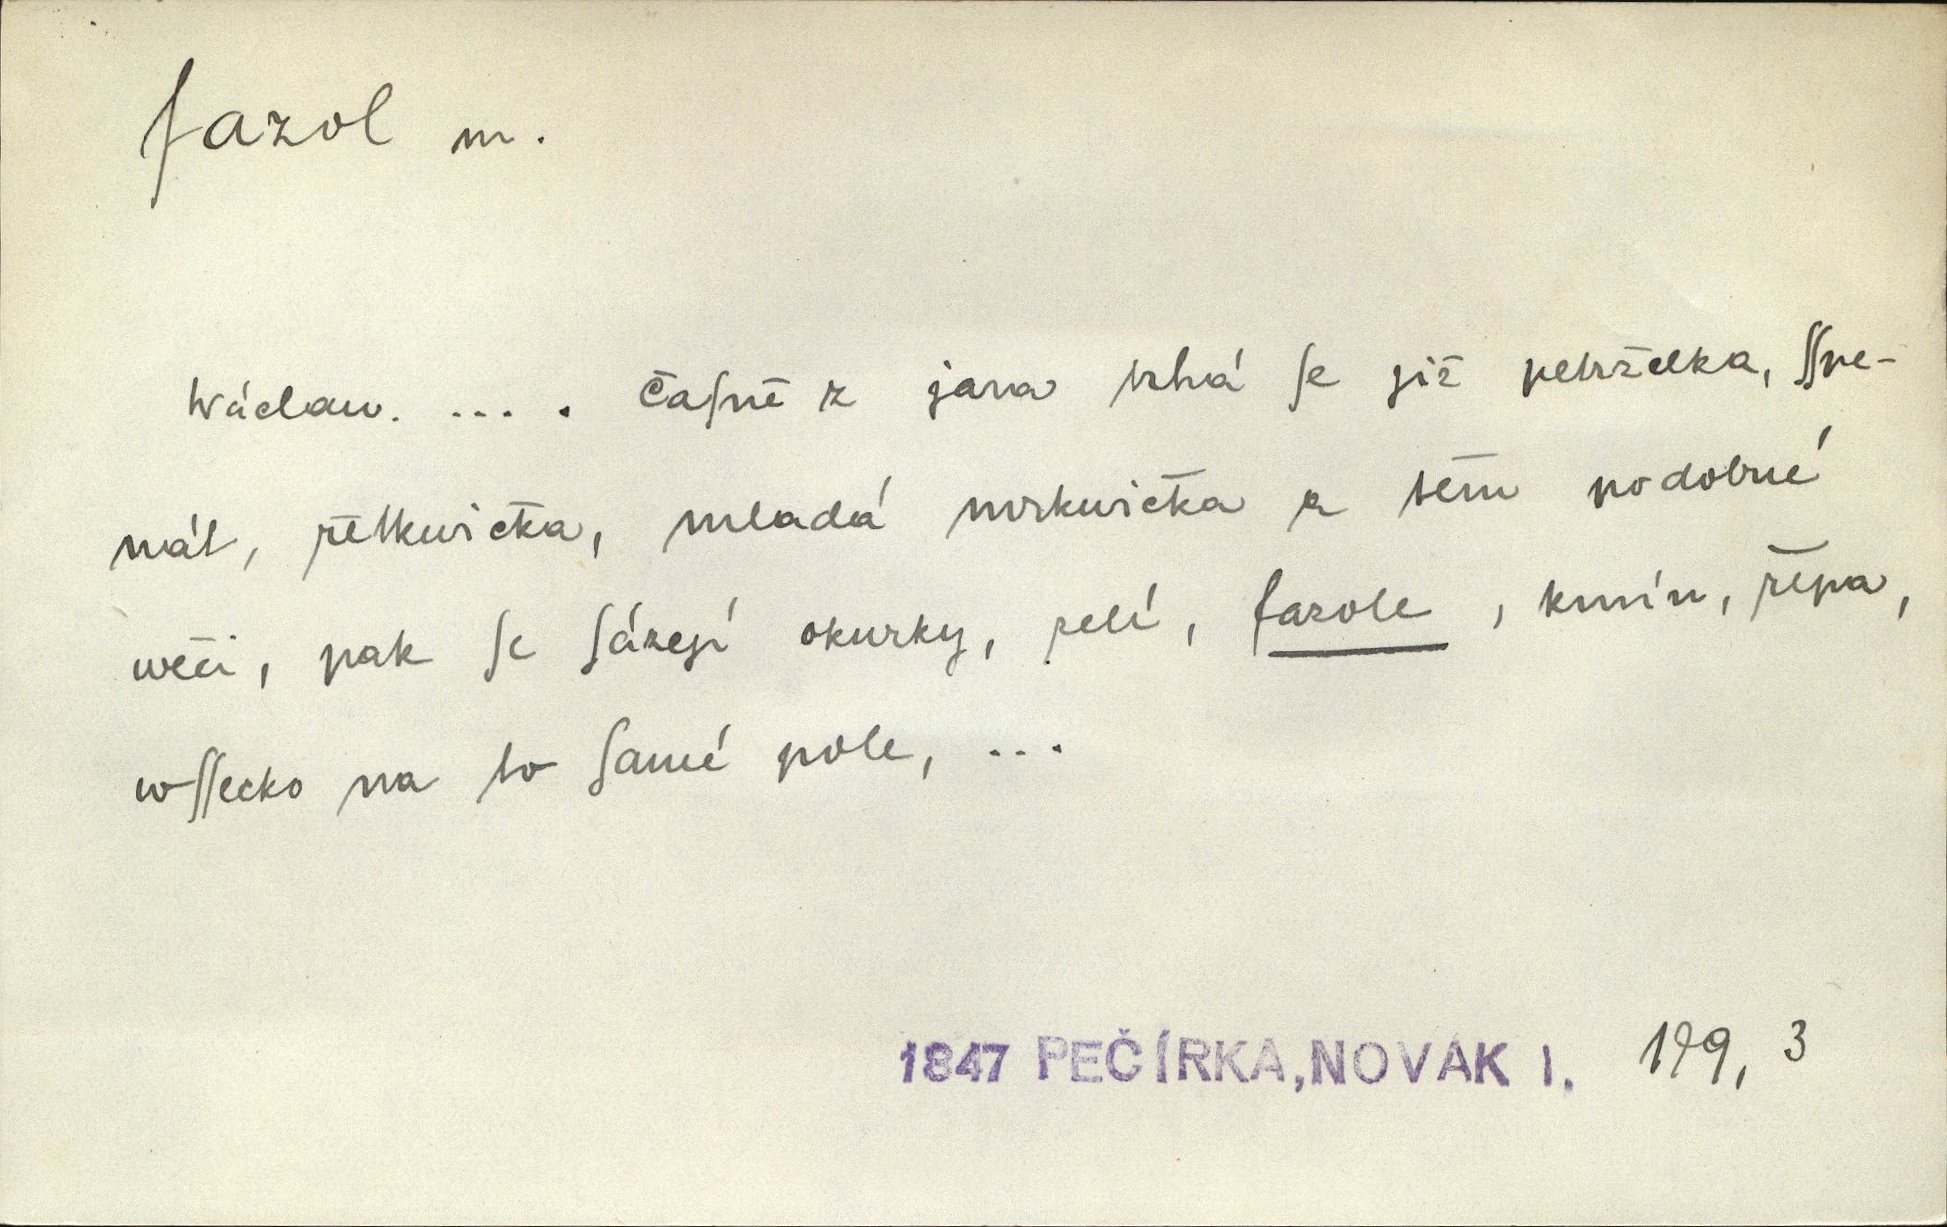 fazol m.
Wáclaw. .... Čaſně z jara trhá ſe již petrželka, ſſpe-
nát, řetkwička, mladá mrkwička a těm podobné
wěci, pak ſe ſázegí okurky, zelí, fazole, kmín, řepa,
wſſecko na to ſamé pole, ...
1847 PEČÍRKA, NOVÁK I. 179, 3